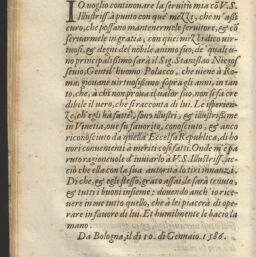 IO uoglio continouare la seruitù mia cō V.S.
Illustriss. à punto con que' mezzi, che m'assi
curo, che possano mantenermele seruitore, & cō
seruarmele in gratia, con que' mezzi dico uir-
tuosi, & degni del nobile animo suo, de' quali u-
no principalissimo sarà il Sig. Stanislao
Gentil'huomo Polacco, che uiene à Ro-
ma; giouane uirtuosissimo sopra gli anni, in tan
to, che, à chi non proua il ualor suo, non si fa cre
dibile il uero, che si racconta di lui. Le isperien-
ze, ch'egli ha fatte, sono illustri, & illustrissime
in Vinetia, oue fu fauorito, conosciuto, & anco
riconosciuto da quella Eccelsa Republica, di ho
nori conuenienti à meriti così fatti. Onde m'è pa
ruto ragioneuole d'inuiarlo à V.S. Illustriss. ac-
ciò che ella con la sua autorità lo tiri innanzi.
Di che, & egli stesso, grato assai, le sarà tenuto,
& tutti i buoni insieme; douendo anch'io rice-
uere in me tutto quello, che à lei piacerà di ope-
rare in fauore di lui. Et humilmente le bacio la
mano.
Da Bologna, il dì 10. di Gennaio. 1586.